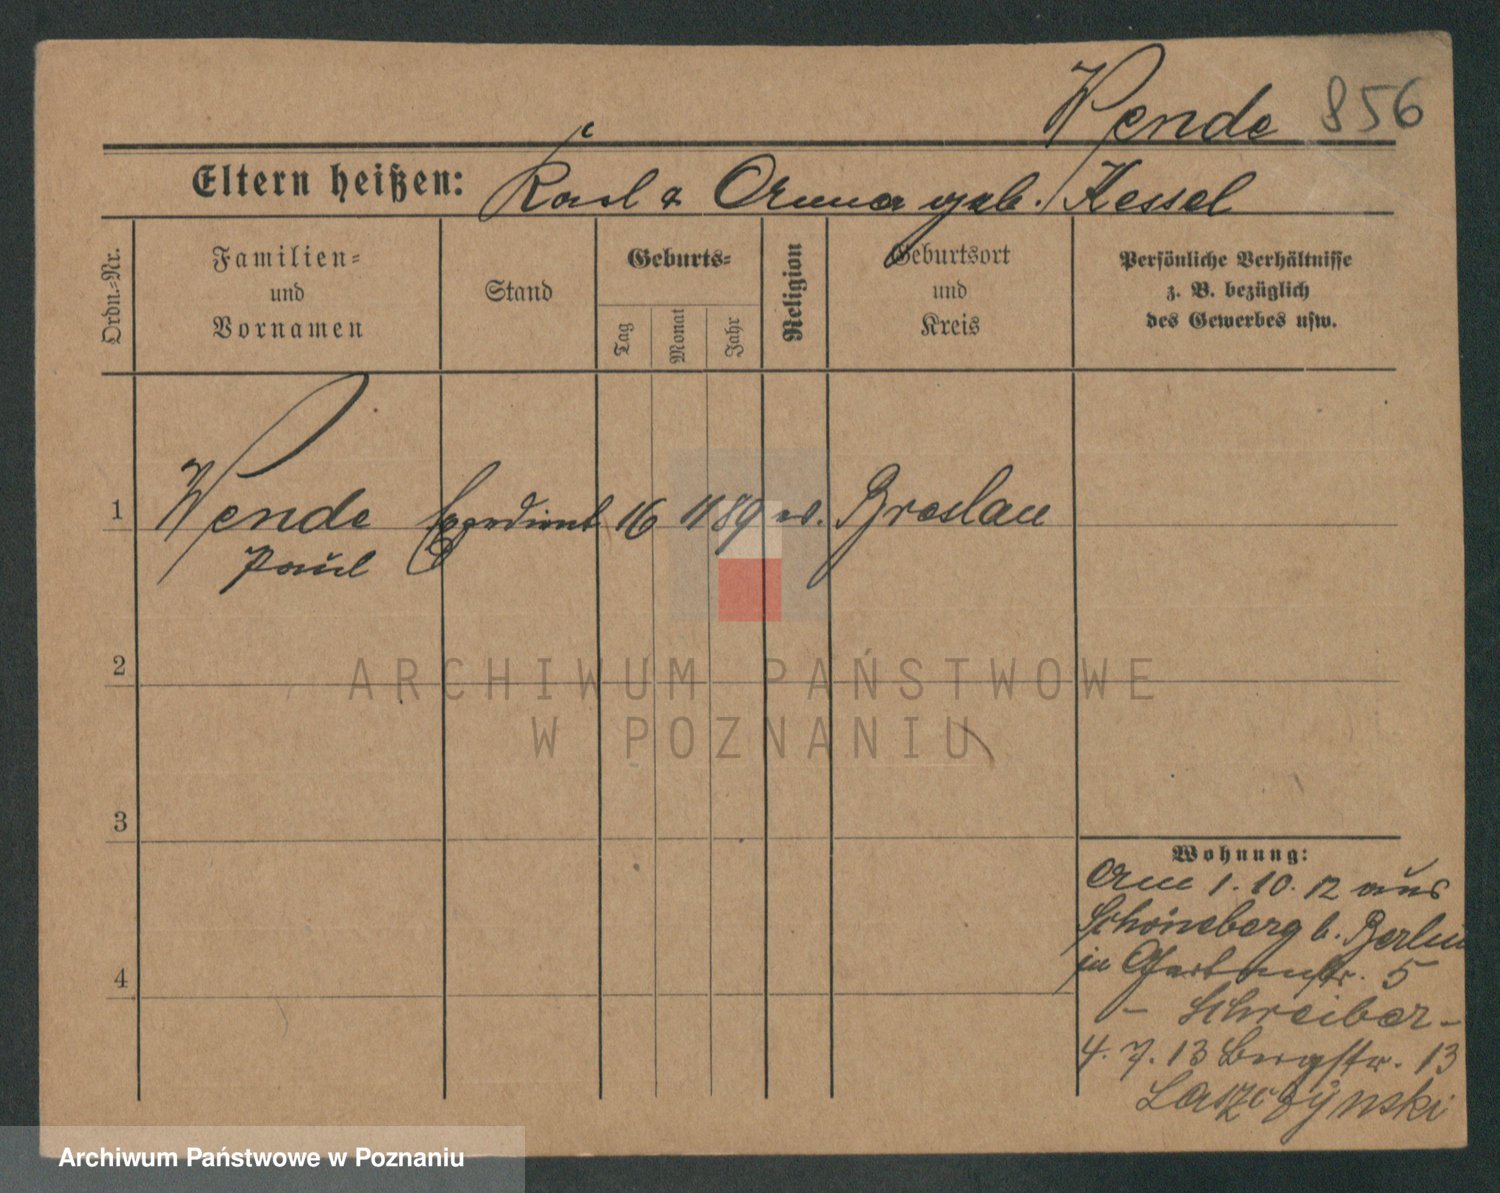 Wende 856
Eltern heißen: Karl & Anna geb. Kessel
Ordn.-Nr.
Familien-
und
Vornamen
Stand
Geburts-
Tag
Monat
Jahr
Religion
Geburtsort
und
Kreis
Persönliche Verhältnisse
z. B. bezüglich
des Gewerbes usw.
1 Wende Expedient 16 11 89 ev. Breslau
Paul
2
ARCHIWUM PAŃSTWOWE
W POZNANIU
3
4
Wohnung:
Am 1. 10. 12 aus
Schöneberg b. Berlin
in Gartenstr. 5
- Schreiber -
4. 7. 13 Bergstr. 13
Laszczynski
Archiwum Państwowe w Poznaniu